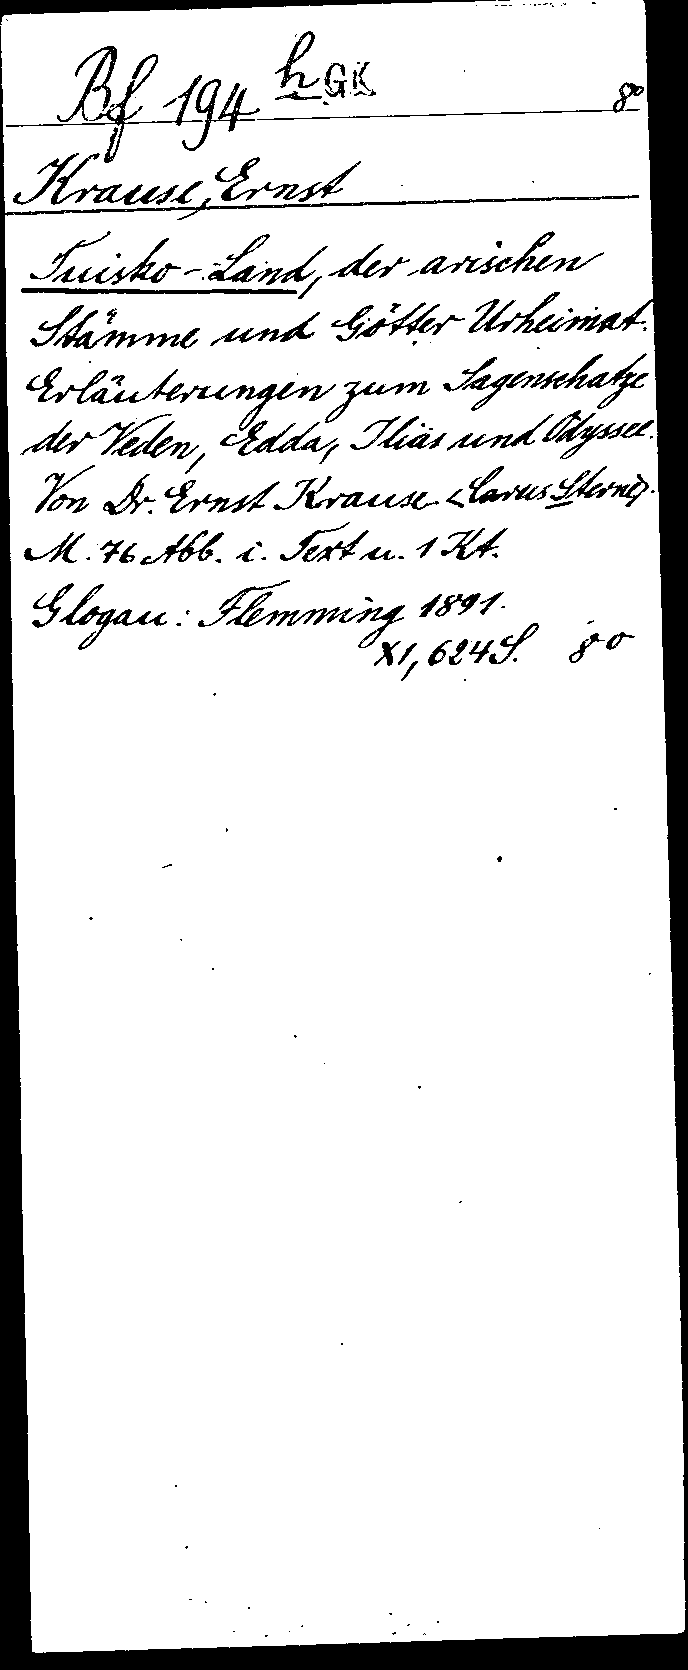 Bf 194 h GK 8°
Krause, Ernst
Tuisko-Land, der arischen
Stämme und Götter Urheimat.
Erläuterungen zum Sagenschatze
der Veden, Edda, Ilias und Odyssee.
Von Dr. Ernst Krause <Carus Sterne>.
M. 76 Abb. i. Text u. 1 Kt.
Glogau: Flemming 1891.
XI, 624 S. 8°